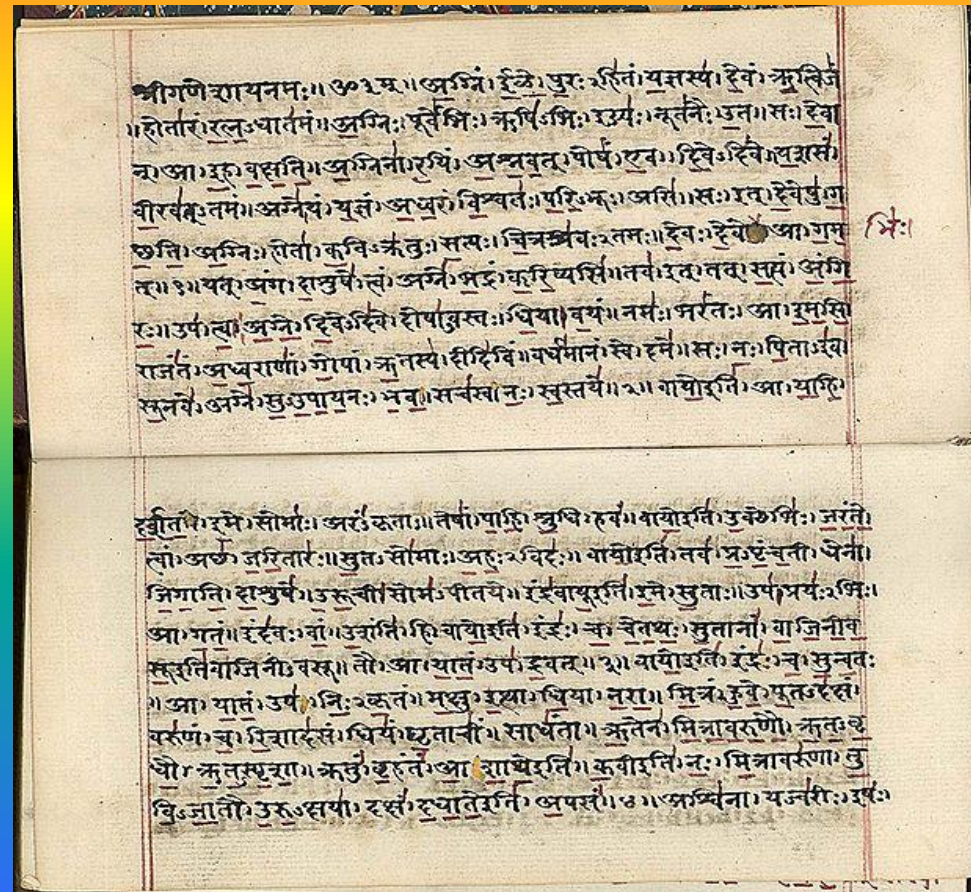 श्रीगणेशायनमः॥ ॐ३म्॥ अग्निं। ईळे। पुरःऽहितं। यज्ञस्य। देवं। ऋत्विजं
॥होतारं। रत्नऽधातमं॥ अग्निः। पूर्वेभिः। ऋषिऽभिः। ईड्यः। नूतनैः। उत॥ सः। देवा
न्। आ। इह। वक्षति॥ अग्निना। रयिं। अश्नवत्। पोषं। एव। दिवेऽदिवे॥ यशसं।
वीरवत्ऽतमं॥ अग्ने। यं। यज्ञं। अध्वरं। विश्वतः। परिऽभूः। असि॥ सः। इत्। देवेषु। ग
च्छति॥ अग्निः। होता। कविऽक्रतुः। सत्यः। चित्रश्रवःऽतमः॥ देवः। देवे आ। गम
भिः।
त्॥१॥ यत्। अंग। दाशुषे। त्वं। अग्ने। भद्रं। करिष्यसि॥ तव। इत्। तत्। सत्यं। अंगि
रः॥ उप। त्वा। अग्ने। दिवेऽदिवे। दोषाऽवस्तः। धिया। वयं॥ नमः। भरंतः। आ। इमसि॥
राजंतं। अध्वराणां। गोपां। ऋतस्य। दीदिविं॥ वर्धमानं। स्वे। दमे॥ सः। नः। पिताऽइव।
सूनवे। अग्ने। सुऽउपायनः। भव॥ सचस्व। नः। स्वस्तये॥२॥ वायोइति। आ। याहि।
दर्शत। इमे। सोमाः। अरंऽकृताः॥ तेषां। पाहि। श्रुधि। हवं॥ वायोइति। उक्थेभिः। जरंते।
त्वां। अच्छ। जरितारः॥ सुतऽसोमाः। अहःऽविदः॥ वायोइति। तव। प्रऽपृंचती। धेना।
जिगाति। दाशुषे॥ उरूची। सोमऽपीतये॥ इंद्रवायूइति। इमे। सुताः॥ उप। प्रयःऽभिः।
आ। गतं॥ इंदवः। वां। उशंति। हि॥ वायोइति। इंद्रः। च। चेतथः। सुतानां। वाजिनीव
सूइतिवाजिनीऽवसू॥ तौ। आ। यातं। उप। द्रवत्॥३॥ वायोइति। इंद्रः। च। सुन्वतः
॥आ। यातं। उप। निःऽकृतं॥ मक्षु। इत्था। धिया। नरा॥ मित्रं। हुवे। पूतऽदक्षं।
वरुणं। च। रिशादसं॥ धियं। घृताचीं। साधंता॥ ऋतेन। मित्रावरुणौ। ऋतऽवृ
धौ। ऋतऽस्पृशा॥ क्रतुं। बृहंतं। आशाथेइति॥ कवीइति। नः। मित्रावरुणा। तु
विऽजातौ। उरुऽक्षया॥ दक्षं। दधातेइति। अपसं॥४॥ अश्विना। यज्वरीः। इषः।